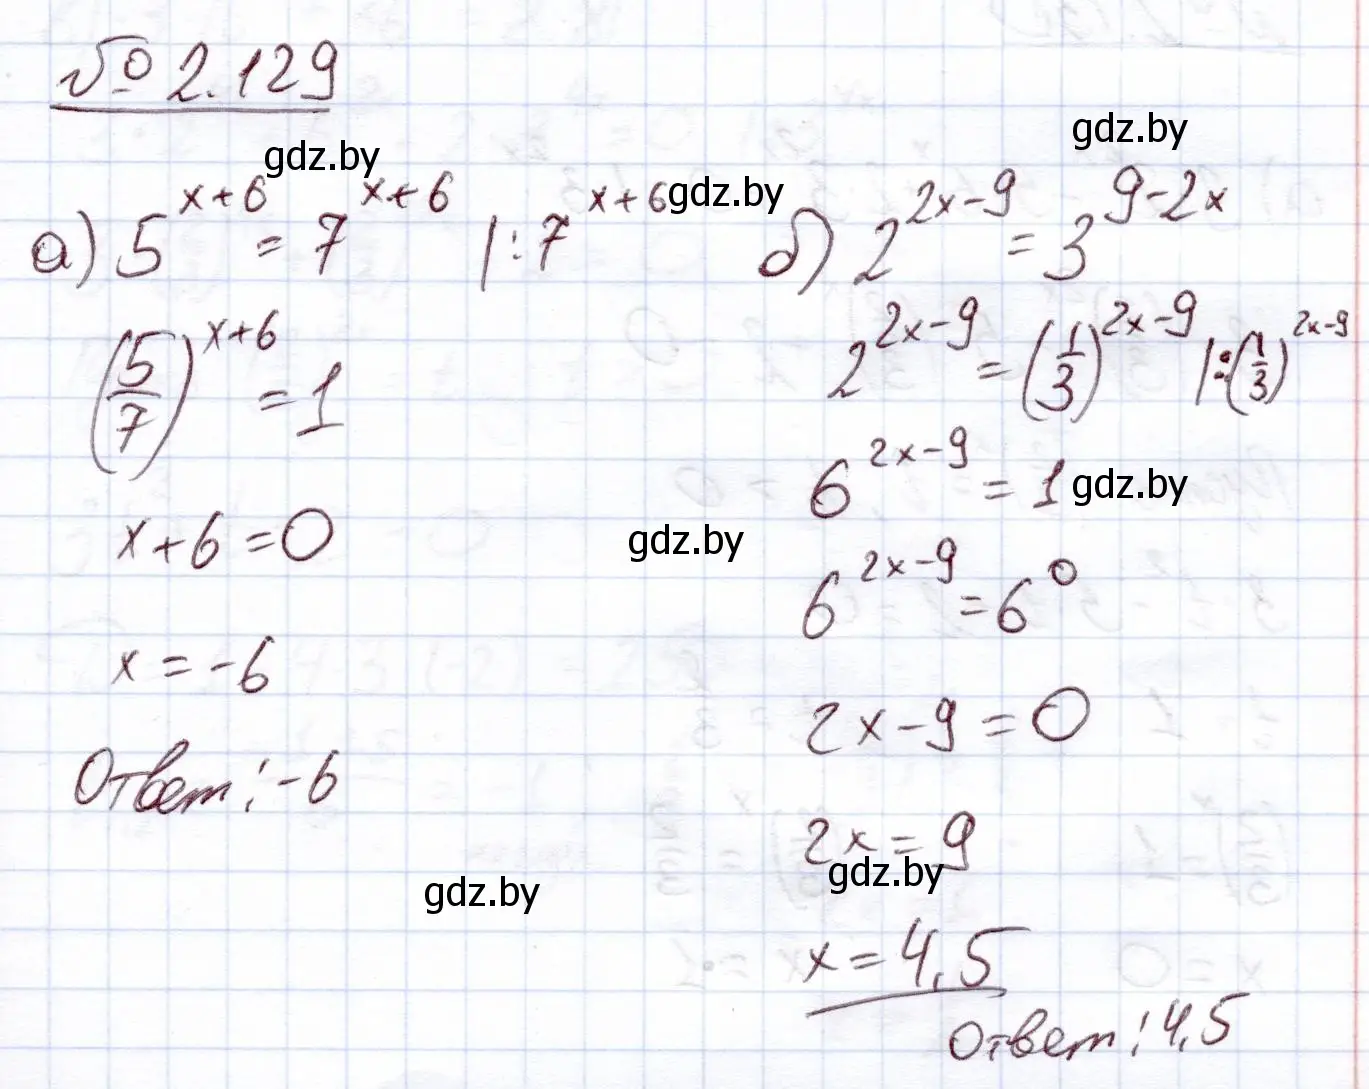 № 2.129
а) 5^(x+6) = 7^(x+6) | : 7^(x+6)
(5/7)^(x+6) = 1
x+6=0
x=-6
Ответ: -6
б) 2^(2x-9) = 3^(9-2x)
2^(2x-9) = (1/3)^(2x-9) | : (1/3)^(2x-9)
6^(2x-9) = 1
6^(2x-9) = 6^0
2x-9=0
2x=9
x=4,5
Ответ: 4,5
gdz.by
gdz.by
gdz.by
gdz.by
gdz.by
gdz.by
gdz.by